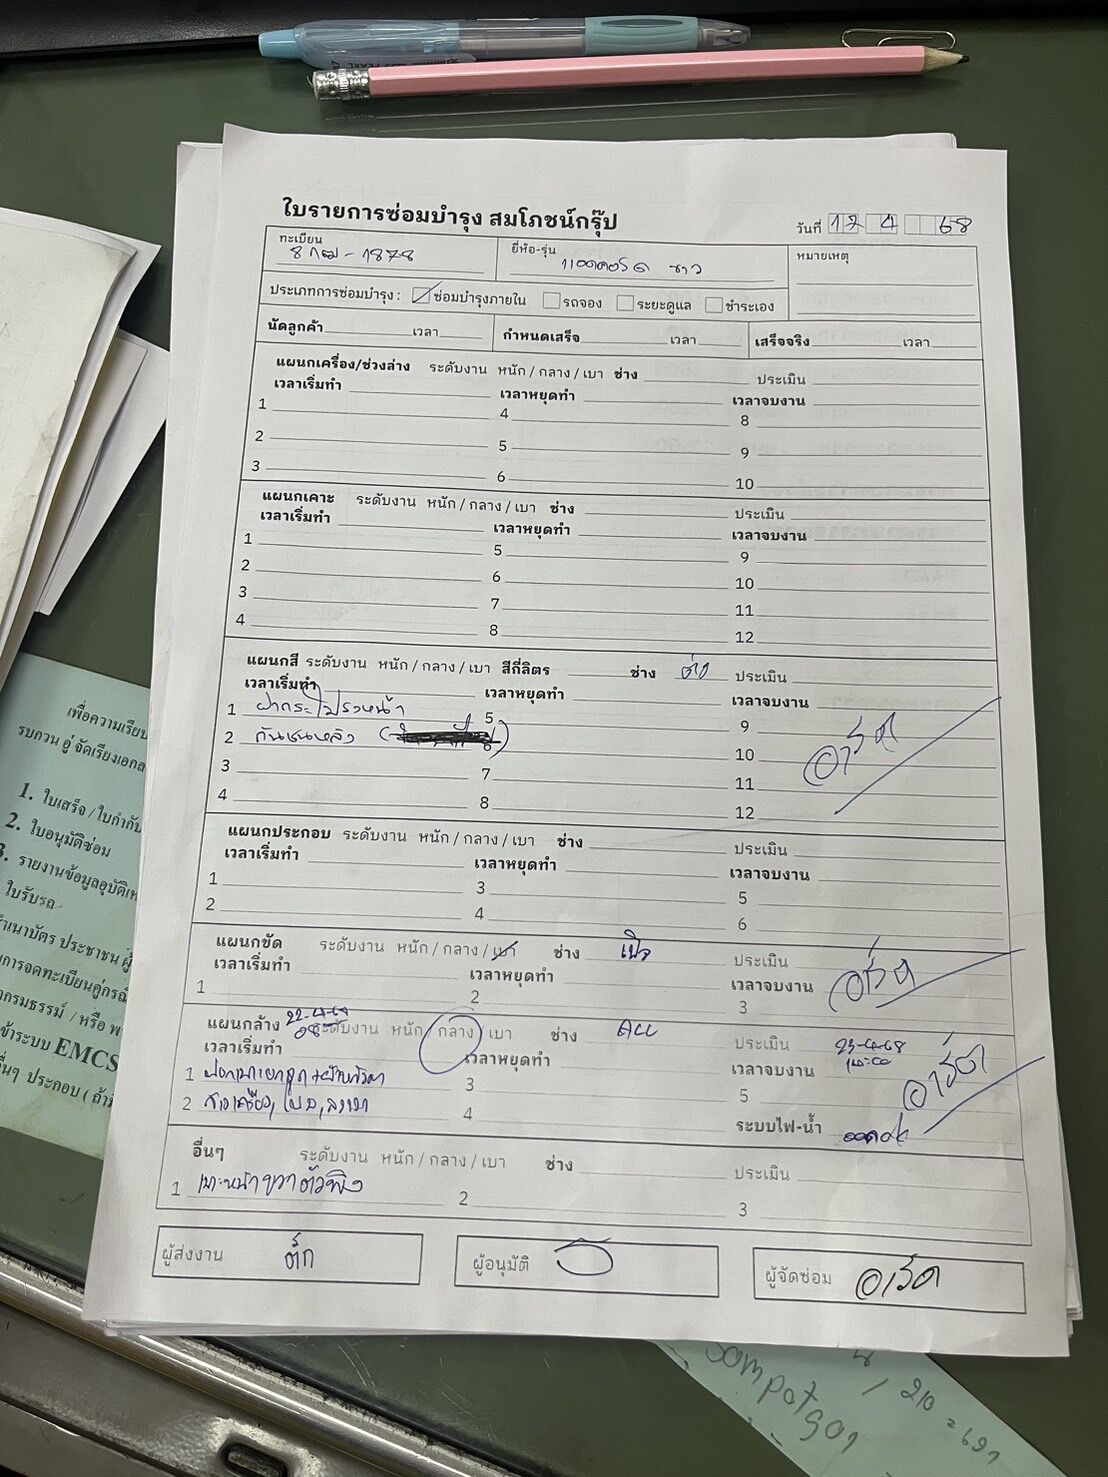 ใบรายการซ่อมบำรุง สมโภชน์กรุ๊ป
วันที่ 12 4 68
ทะเบียน
8 กฒ - 1878
ยี่ห้อ-รุ่น แอคคอร์ด ขาว
หมายเหตุ
ประเภทการซ่อมบำรุง : ซ่อมบำรุงภายใน รถจอง ระยะดูแล ชำระเอง
นัดลูกค้า เวลา กำหนดเสร็จ เวลา เสร็จจริง เวลา
แผนกเครื่อง/ช่วงล่าง ระดับงาน หนัก / กลาง / เบา ช่าง ประเมิน
เวลาเริ่มทำ เวลาหยุดทำ เวลาจบงาน
1 4 8
2 5 9
3 6 10
แผนกเคาะ ระดับงาน หนัก / กลาง / เบา ช่าง ประเมิน
เวลาเริ่มทำ เวลาหยุดทำ เวลาจบงาน
1 5 9
2 6 10
3 7 11
4 8 12
แผนกสี ระดับงาน หนัก / กลาง / เบา สีกี่ลิตร ช่าง ต่อ ประเมิน
เวลาเริ่มทำ เวลาหยุดทำ เวลาจบงาน
1 ฝากระโปรงหน้า 5 9
2 กันชนหลัง 6 10 อาร์ต
3 7 11
4 8 12
แผนกประกอบ ระดับงาน หนัก / กลาง / เบา ช่าง ประเมิน
เวลาเริ่มทำ เวลาหยุดทำ เวลาจบงาน
1 3 5
2 4 6
แผนกขัด ระดับงาน หนัก / กลาง / เบา ช่าง ประเมิน
เวลาเริ่มทำ เวลาหยุดทำ เวลาจบงาน อาร์ต
1 2 3
แผนกล้าง 22-4-68 ระดับงาน หนัก กลาง / เบา ช่าง ประเมิน 23-4-68
เวลาเริ่มทำ เวลาหยุดทำ เวลาจบงาน อาร์ต
1 3 5
2 4 ระบบไฟ-น้ำ
อื่นๆ ระดับงาน หนัก / กลาง / เบา ช่าง ประเมิน
1 เบาะหน้าขวาตัวพิง 2 3
ผู้ส่งงาน ตั๊ก ผู้อนุมัติ ผู้จัดซ่อม อาร์ต
เพื่อความเรียบ
รบกวน อู่ จัดเรียงเอกส
1. ใบเสร็จ / ใบกำกับ
2. ใบอนุมัติซ่อม
3. รายงานข้อมูลอุบัติเห
ใบรับรถ
ำเนาบัตร ประชาชน ผู้
การจดทะเบียนคู่กรณี
ากรมธรรม์ / หรือ พ
ข้าระบบ EMCS
ื่นๆ ประกอบ ( ถ้ามี